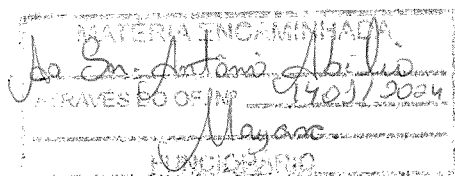 MATÉRIA ENCAMINHADA
Ao Sr. Antônio Abílio
ATRAVÉS DO OF. Nº 1409/2024
Mayara
FUNCIONÁRIO